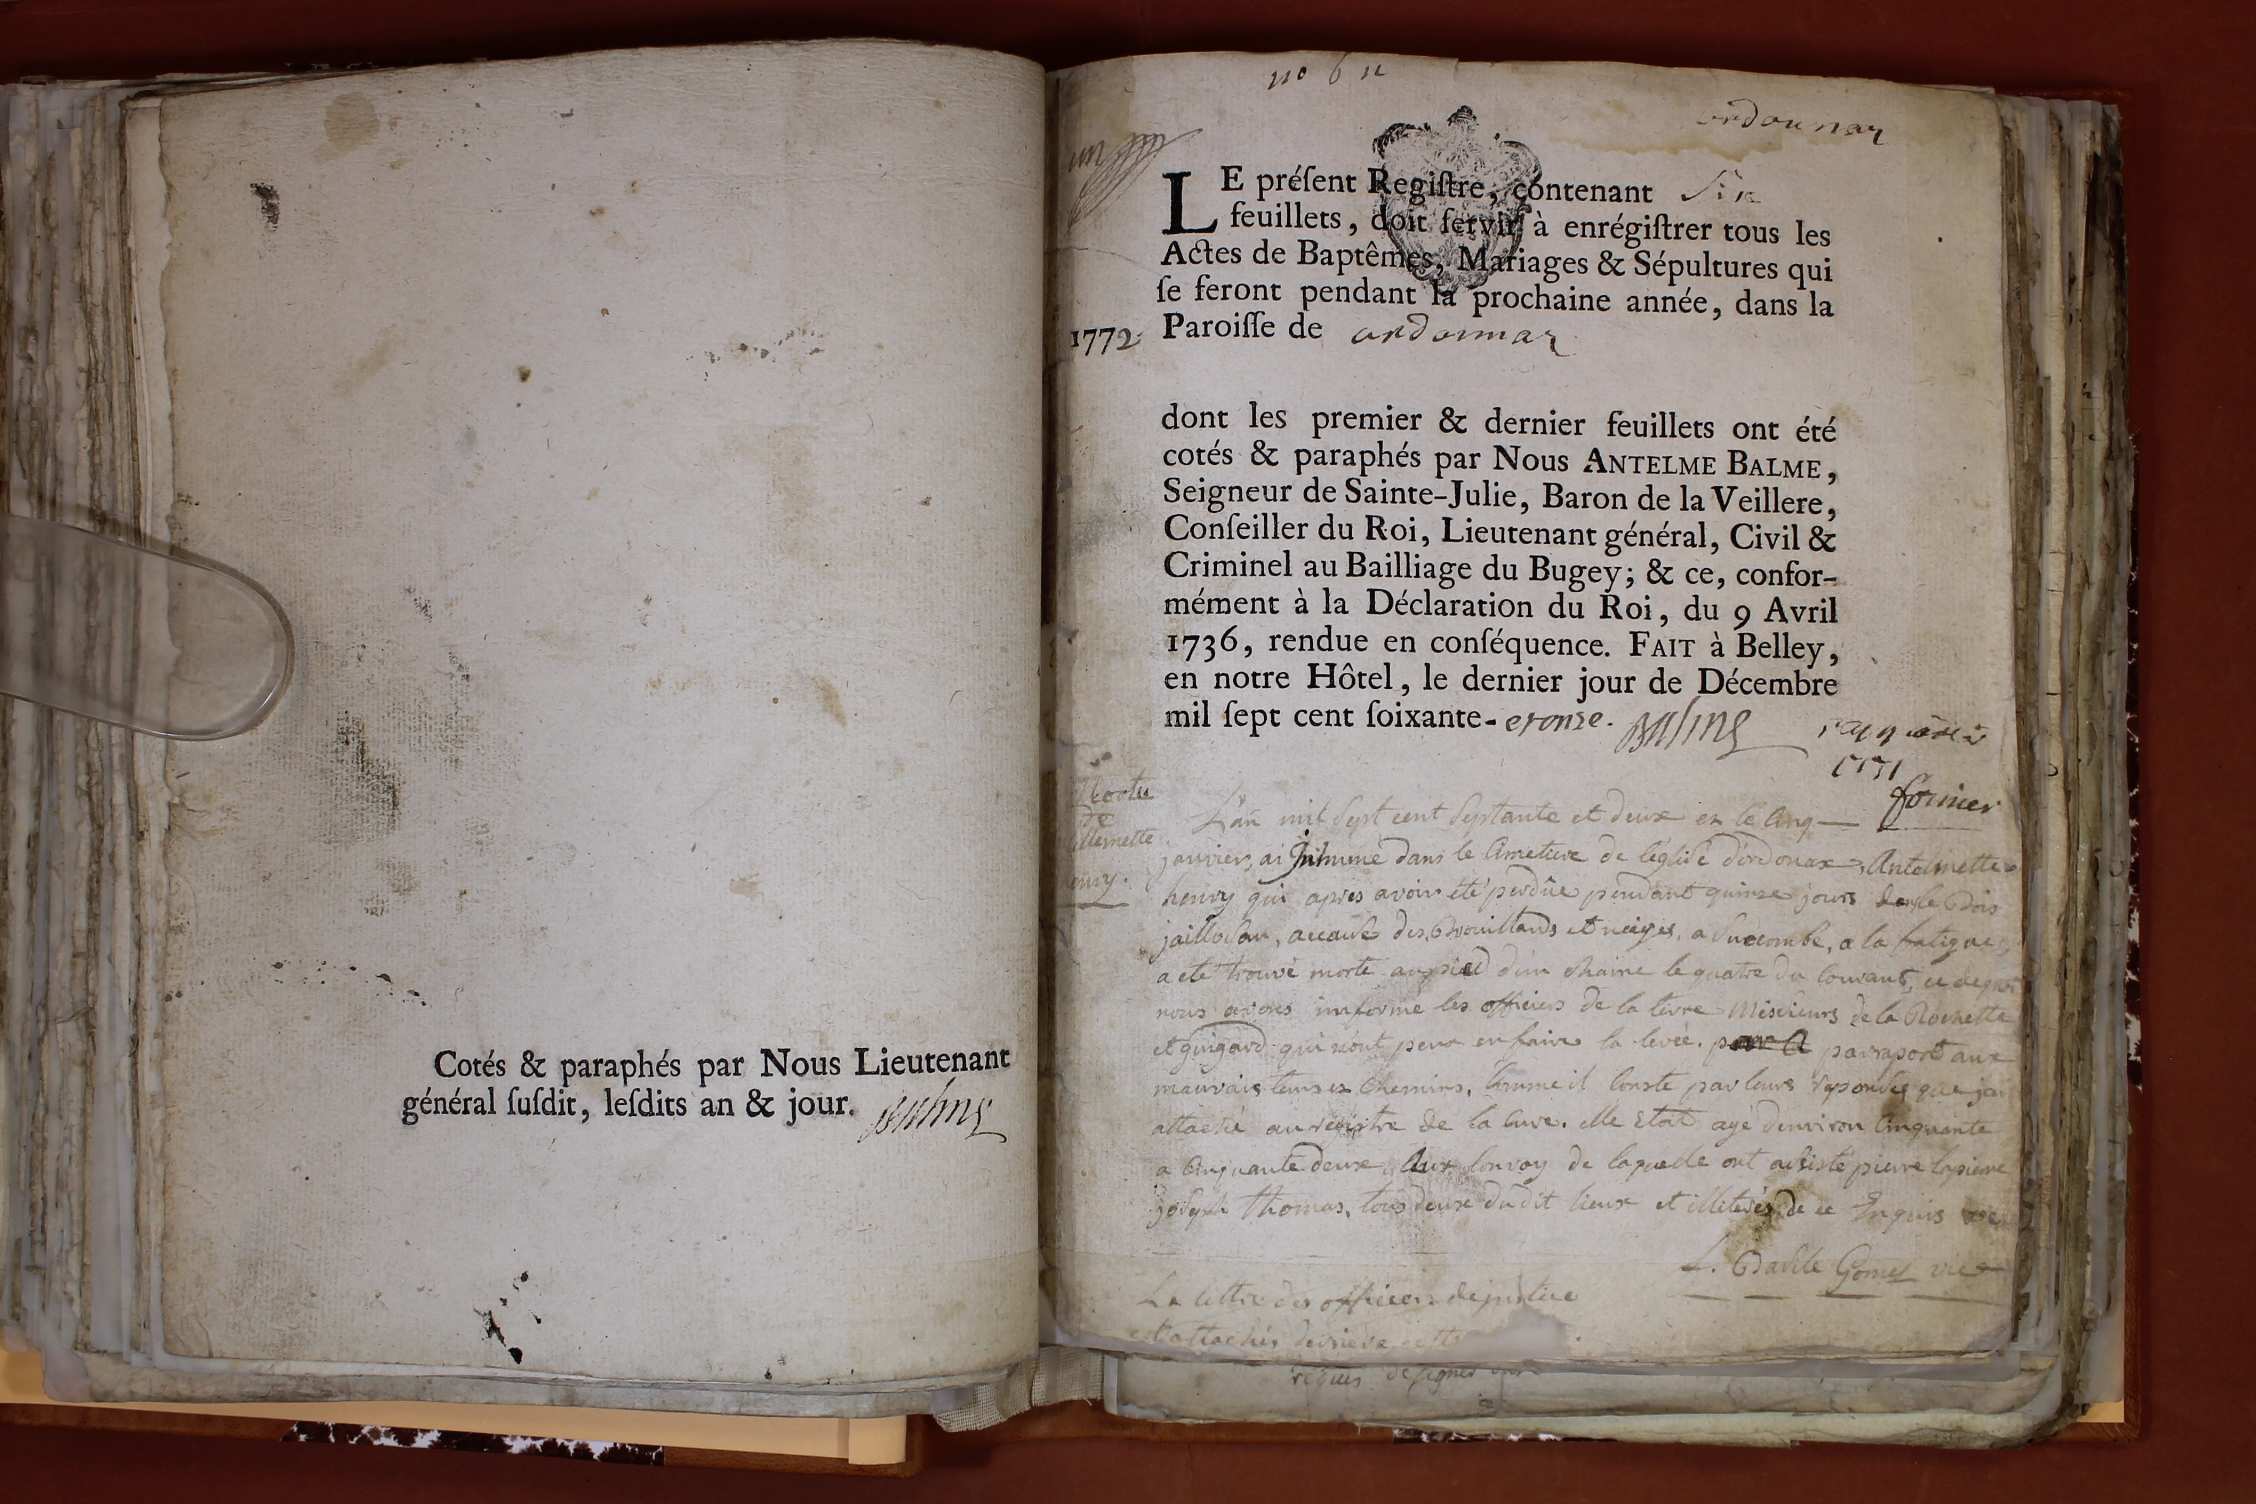 Cotés & paraphés par Nous Lieutenant
général ſuſdit, leſdits an & jour.
Balme
ordonnaz
un
LE préſent Regiſtre, contenant Six
feuillets, doit ſervir à enrégiſtrer tous les
Actes de Baptêmes, Mariages & Sépultures qui
ſe feront pendant la prochaine année, dans la
1772. Paroiſſe de ordonnaz
dont les premier & dernier feuillets ont été
cotés & paraphés par Nous ANTELME BALME,
Seigneur de Sainte-Julie, Baron de la Veillere,
Conſeiller du Roi, Lieutenant général, Civil &
Criminel au Bailliage du Bugey; & ce, confor-
mément à la Déclaration du Roi, du 9 Avril
1736, rendue en conſéquence. FAIT à Belley,
en notre Hôtel, le dernier jour de Décembre
mil ſept cent ſoixante-et onze. Balme
L'an mil Sept cent Septante et deux en le Cinq
janvier, ai Inhumé dans le Cimetiere de l'église d'ordonax, Antelmette
henry qui apres avoir été perdüe pendant quinze jours le Bois
jaillosan, acause des Brouillards et neiges, a Succombé, a la fatigue,
a été trouvé morte au pied d'un chaine le quatre du Courant, ce dequoi
nous avons informé les officiers de la terre Messieurs de la Rochette
et guigard qui n'ont peux en faire la levée. parraport aux
mauvais tems et Chemins, Comme il Conste par leurs reponses que jai
attaché au registre de la Cure. elle Etoit agé d'environ Cinquante
a Cinquante deux Aux Convoy de laquelle ont assisté pierre lapierre
joseph thomas, tous deux dudit lieux et illiterés de ce Inquis
L. Basile Gomet vic
La lettre des officiers de justice
est attachée derriere cette
requis de signer